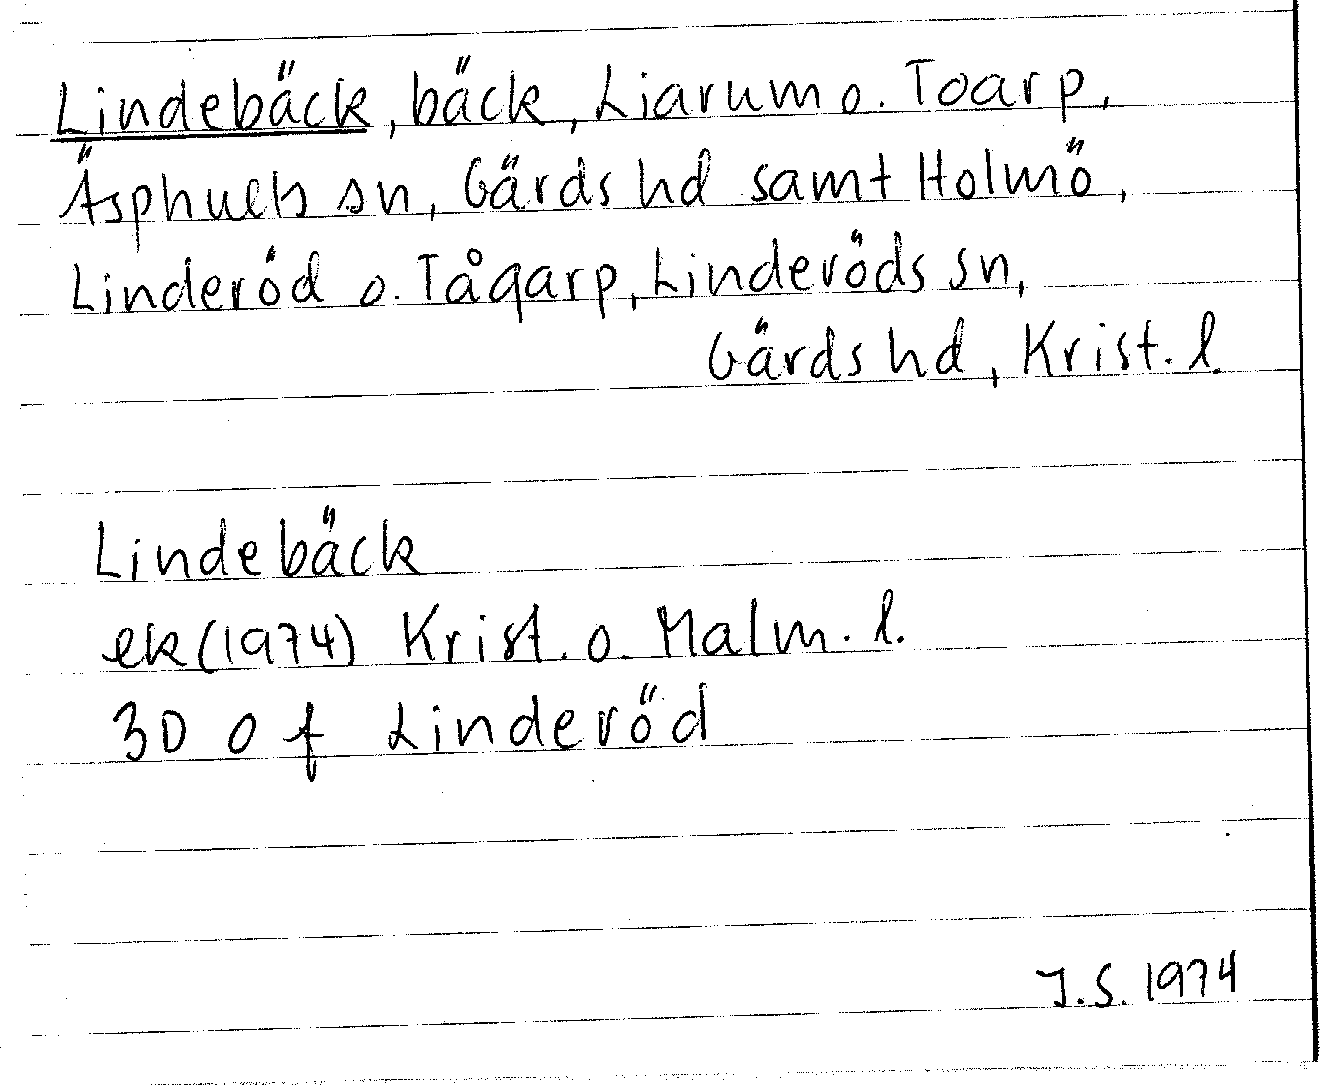 Lindebäck, bäck, Liarum o. Toarp,
Äsphults sn, Gärds hd samt Holmö,
Linderöd o. Tågarp, Linderöds sn,
Gärds hd, Krist. l.
Lindebäck
ek (1974) Krist. o. Malm. l.
3D 0 f Linderöd
J.S. 1974